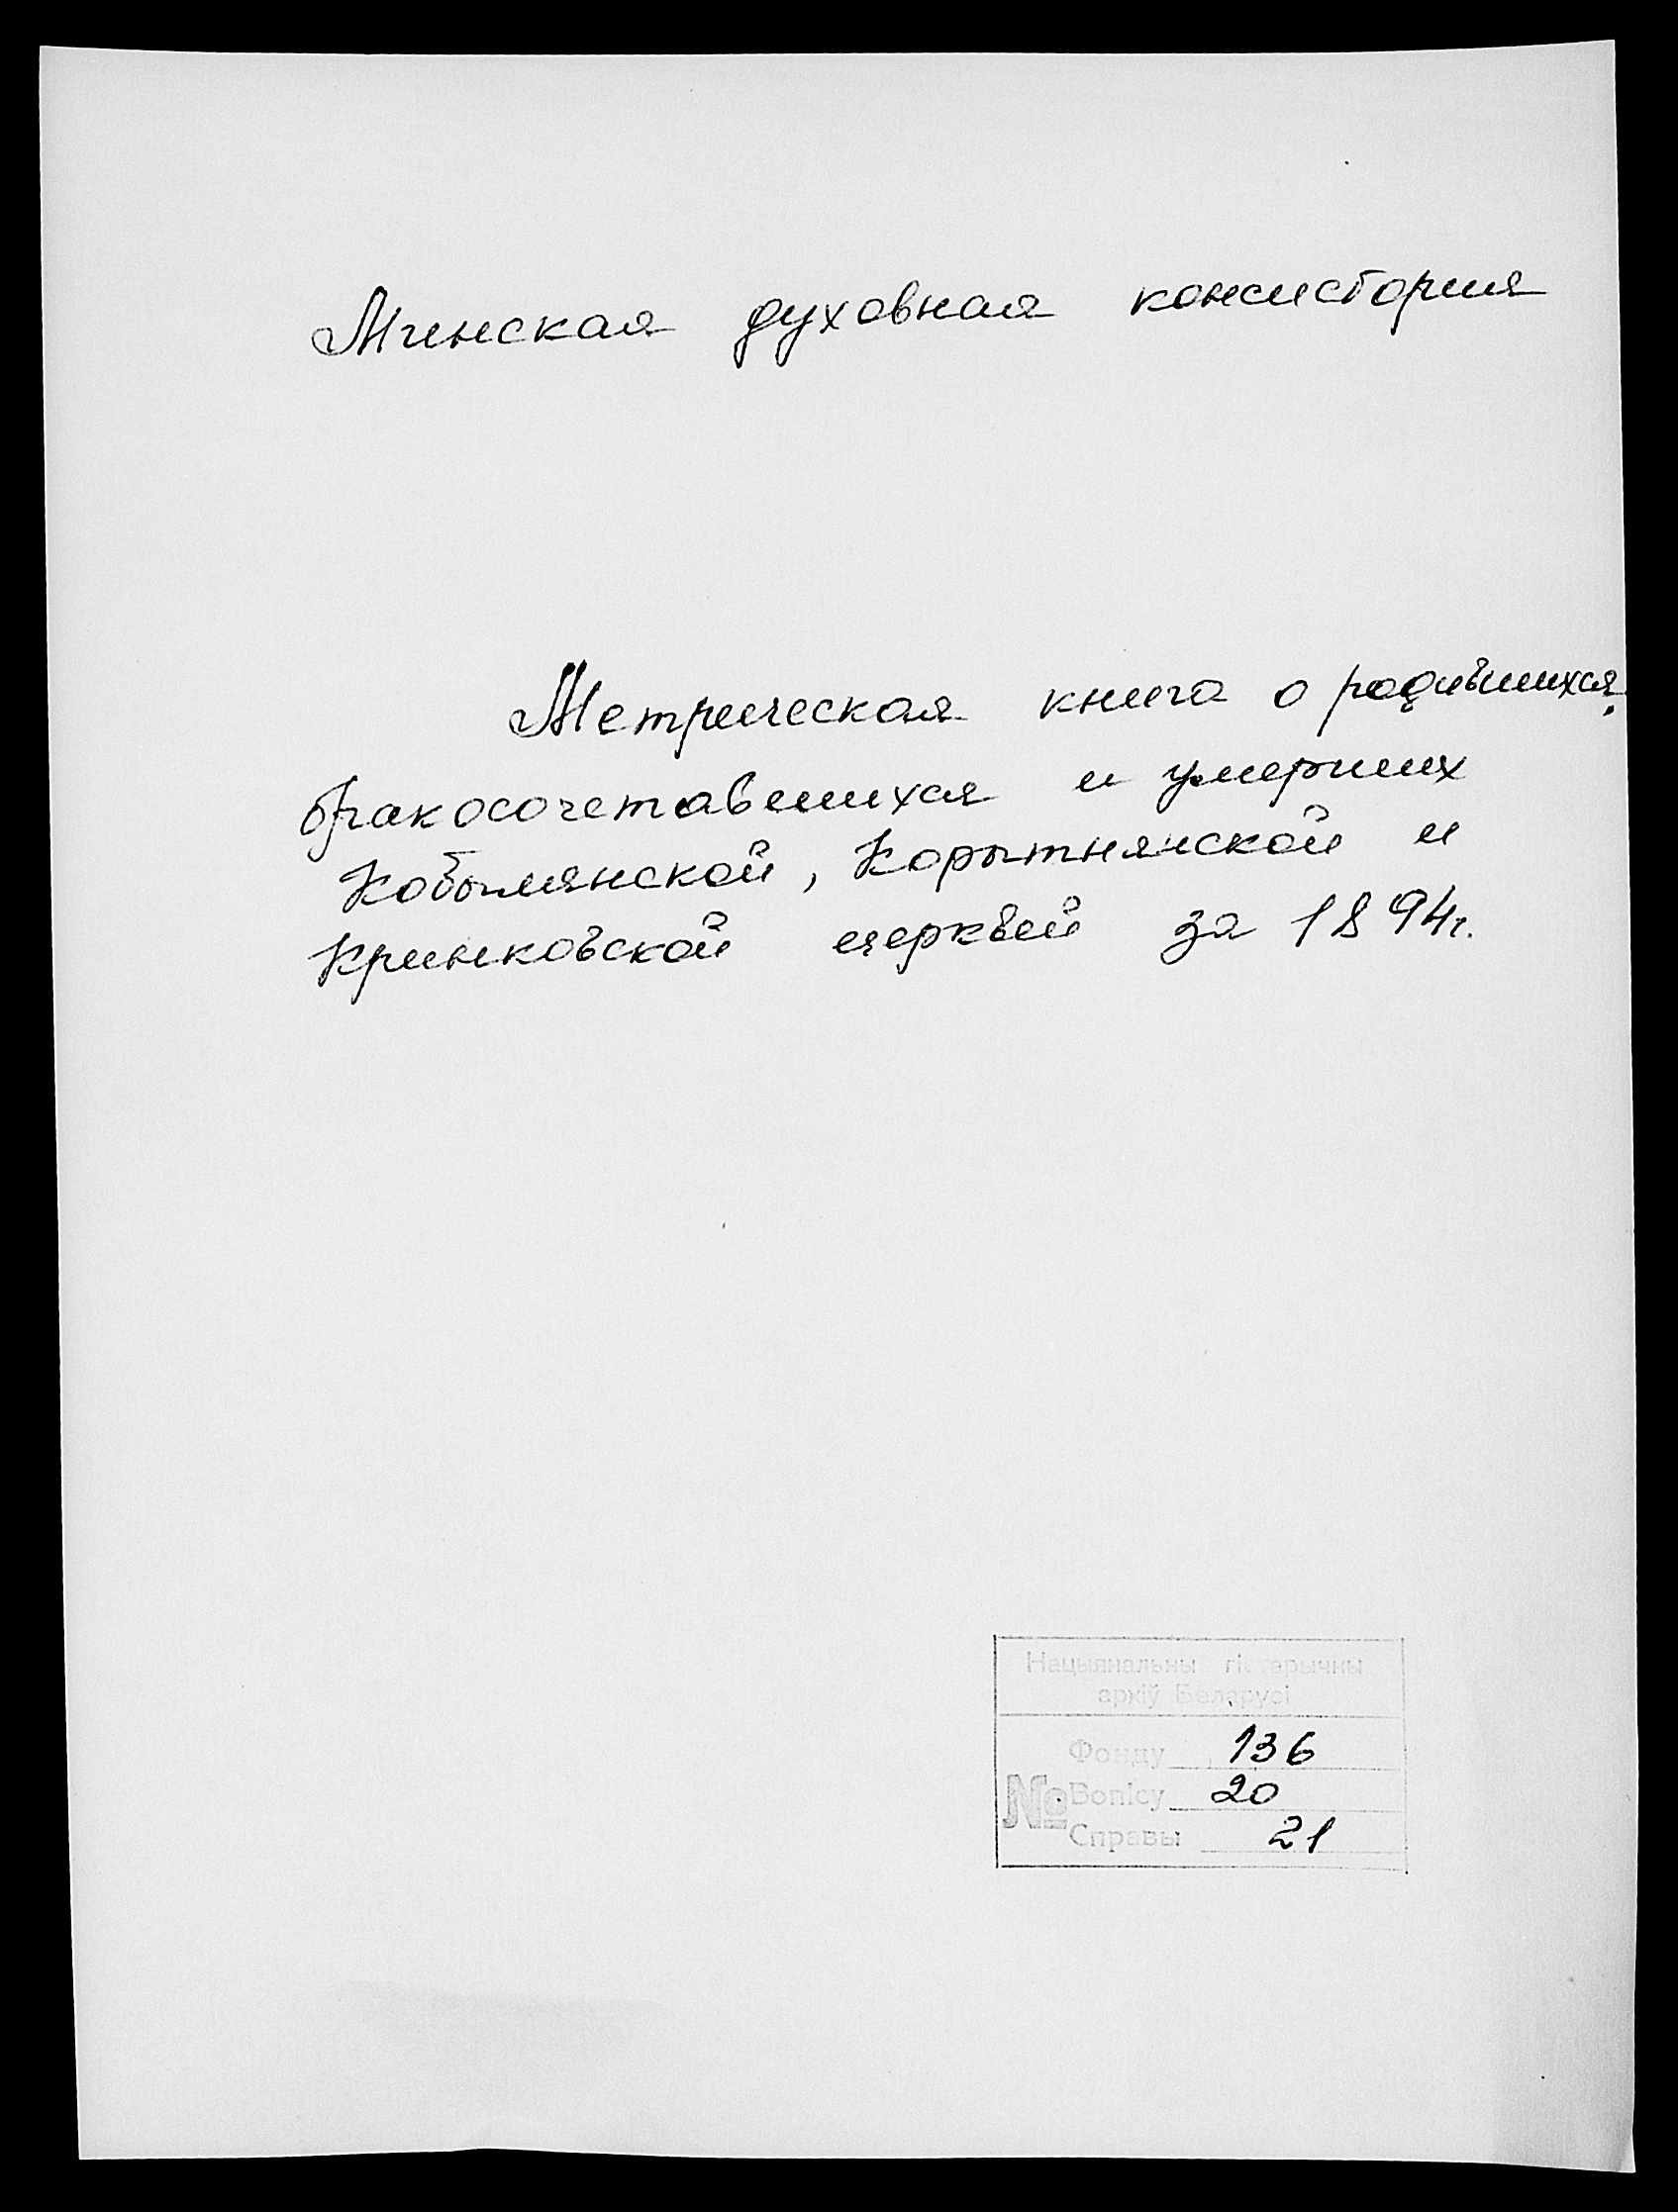 Минская духовная консистория
Метрическая книга о родившихся,
бракосочетавшихся и умерших
Кобылянской, Корытнянской и
Кринковской церквей за 1894г.
Нацыянальны гістарычны
архіў Беларусі
Фонду 136
№ Вопісу 20
Справы 21